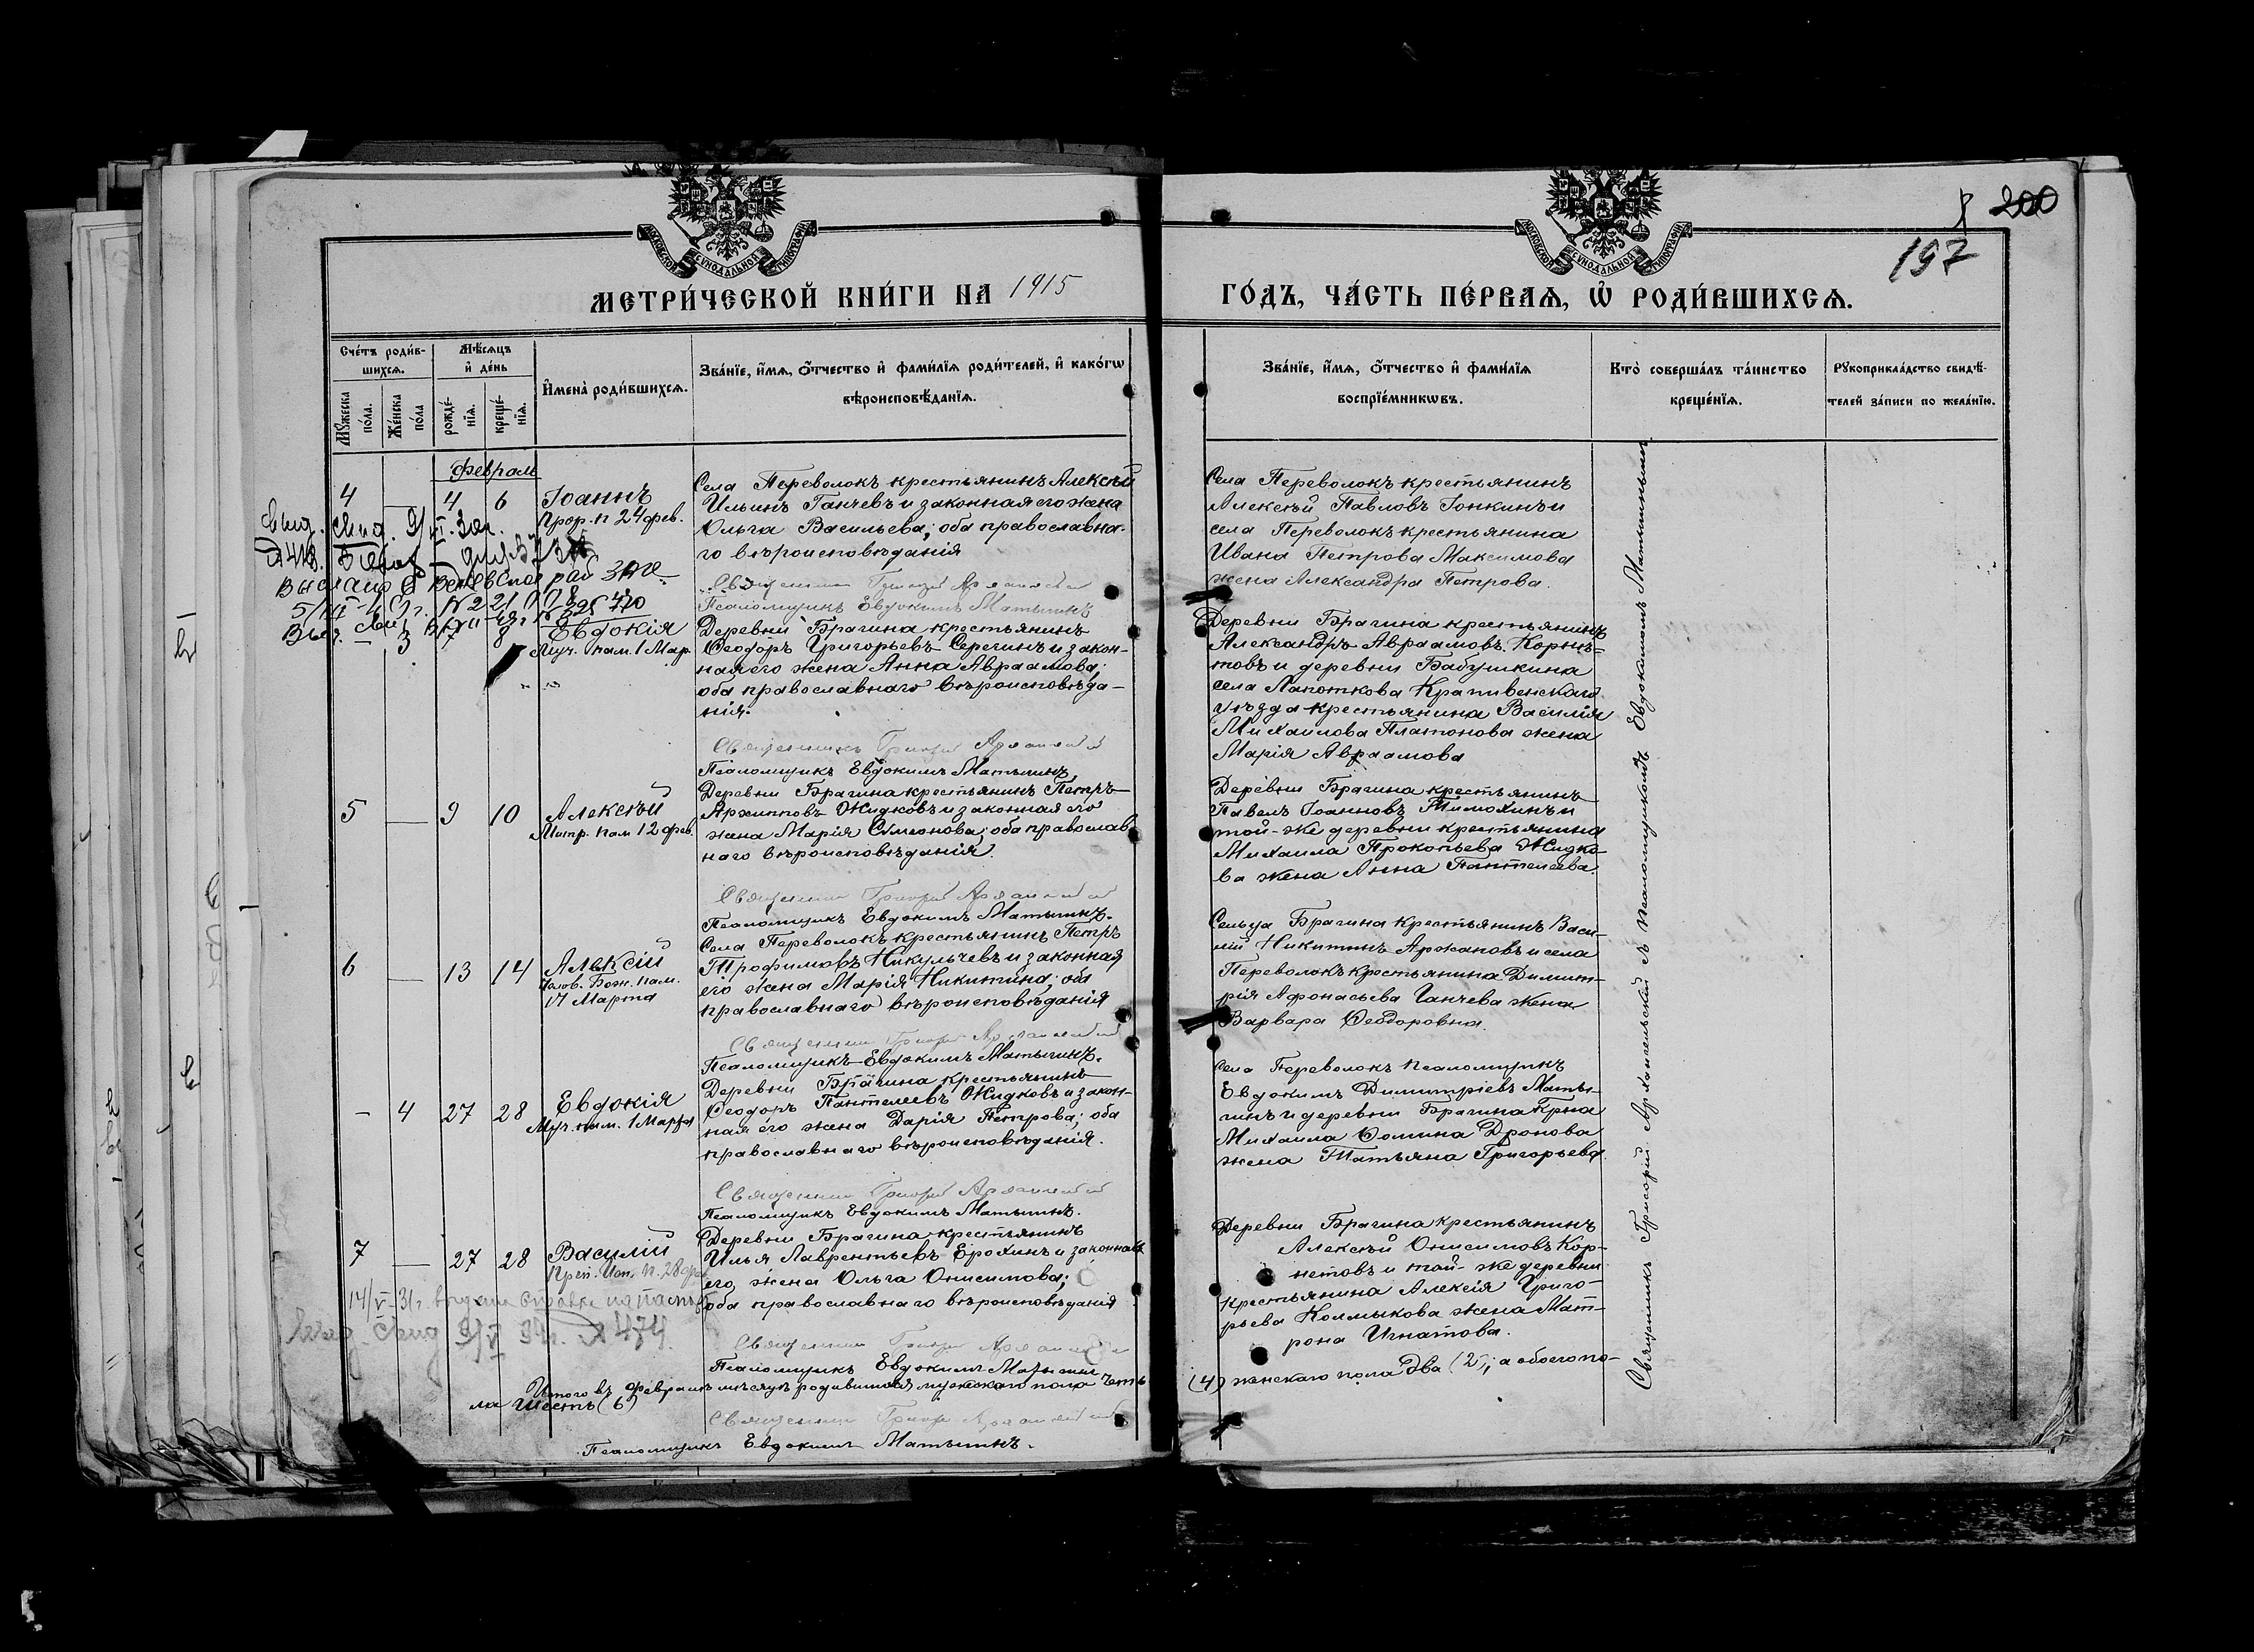 200
197
МОСКОВСКОЙ СѴНОДАЛЬНОЙ ТИПОГРАФІИ
МОСКОВСКОЙ СѴНОДАЛЬНОЙ ТИПОГРАФІИ
МЕТРИ́ЧЕСКОЙ КНИ́ГИ НА 1915
ГО́ДЪ, ЧА́СТЬ ПЕ́РВАѦ, Ѡ҆ РОДИ́ВШИХСѦ.
Сче́тъ роди́в-
шихсѧ.
Мꙋ́жеска по́ла.
Же́нска по́ла
Мѣ́сѧцъ
и҆ де́нь
рожде́-
нїѧ.
креще́-
нїѧ.
И҆мена̀ роди́вшихсѧ.
Зва́нїе, и҆́мѧ, ѻ҆́тчество и҆ фами́лїѧ роди́телей, и҆ како́гѡ
вѣроисповѣ́данїѧ.
Зва́нїе, и҆́мѧ, ѻ҆́тчество и҆ фами́лїѧ
воспрїе́мникѡвъ.
Кто̀ соверша́лъ та́инство
креще́нїѧ.
Рꙋкоприкла́дство свидѣ́-
телей за́писи по жела́нїю.
Февраль
4 4 6 Іоаннъ
Прор. п 24 фев.
Села Переволокъ крестьянинъ Алексѣй
Ильинъ Ганчевъ и законная его жена
Ольга Васильева; оба православна-
го вѣроисповѣданія
Священникъ Григорій Архангельскій
Псаломщикъ Евдокимъ Матынинъ
Села Переволокъ крестьянинъ
Алексѣй Павловъ Іонкинъ и
села Переволокъ крестьянина
Ивана Петрова Максимова
жена Александра Петрова.
— 3 7 8 Евдокія
Муч. пам. 1 Мар.
Деревни Брагина крестьянинъ
Ѳеодоръ Григорьевъ Серегинъ и закон-
ная его жена Анна Авраамова;
оба православнаго вѣроисповѣда-
нія.
Священникъ Григорій Архангельскій
Псаломщикъ Евдокимъ Матынинъ
Деревни Брагина крестьянинъ
Александръ Авраамовъ Корне-
товъ и деревни Бабушкина
села Лапоткова Крапивенскаго
уѣзда крестьянина Василія
Михаилова Платонова жена
Марія Авраамова
5 — 9 10 Алексѣй
Митр. пам 12 фев.
Деревни Брагина крестьянинъ Петръ
Архипповъ Жидковъ и законная его
жена Марія Сѵмеонова; оба православ-
наго вѣроисповѣданія.
Священникъ Григорій Архангельскій
Псаломщикъ Евдокимъ Матынинъ.
Деревни Брагина крестьянинъ
Павелъ Іоанновъ Тимохинъ и
той-же деревни крестьянина
Михаила Прокопьева Жидко-
ва жена Анна Пантелеева.
6 — 13 14 Алексій
Челов. Бож. пам.
17 Марта
Села Переволокъ крестьянинъ Петръ
Трофимовъ Никульчевъ и законная
его жена Марія Никитина; оба
православнаго вѣроисповѣданія
Священникъ Григорій Архангельскій
Псаломщикъ Евдокимъ Матынинъ.
Сельца Брагина крестьянинъ Васи-
лій Никитинъ Аржановъ и села
Переволокъ крестьянина Димит-
рія Афонасьева Ганчева жена
Варвара Ѳеодоровна.
— 4 27 28 Евдокія
Муч. пам. 1 Марта
Деревни Брагина крестьянинъ
Ѳеодоръ Пантелеевъ Жидковъ и закон-
ная его жена Дарія Петрова; оба
православнаго вѣроисповѣданія.
Священникъ Григорій Архангельскій
Псаломщикъ Евдокимъ Матынинъ.
Села Переволокъ псаломщикъ
Евдокимъ Димитріевъ Маты-
нинъ и деревни Брагина кр-на
Михаила Ѳомина Дронова
жена Татьяна Григорьева.
7 — 27 28 Василій
Преп. Исп. п. 28 фев.
14/V-31г. выдана справка
9/V 34г. № 474.
Деревни Брагина крестьянинъ
Илья Лаврентьевъ Ерохинъ и законная
его жена Ольга Онисимова;
оба православнаго вѣроисповѣданія
Священникъ Григорій Архангельскій
Псаломщикъ Евдокимъ Матынинъ
Деревни Брагина крестьянинъ
Алексѣй Онисимовъ Кор-
нетовъ и той-же деревни
крестьянина Алексія Григо-
рьева Колмыкова жена Мат-
рона Игнатова.
Итого въ Февралѣ мѣсяцѣ родившихся мужскаго пола четы-
(4) женскаго пола два (2); а обоего по-
ла шесть (6)
Священникъ Григорій Архангельскій
Псаломщикъ Евдокимъ Матынинъ.
Священникъ Григорій Архангельскій съ псаломщикомъ Евдокимомъ Матынинымъ